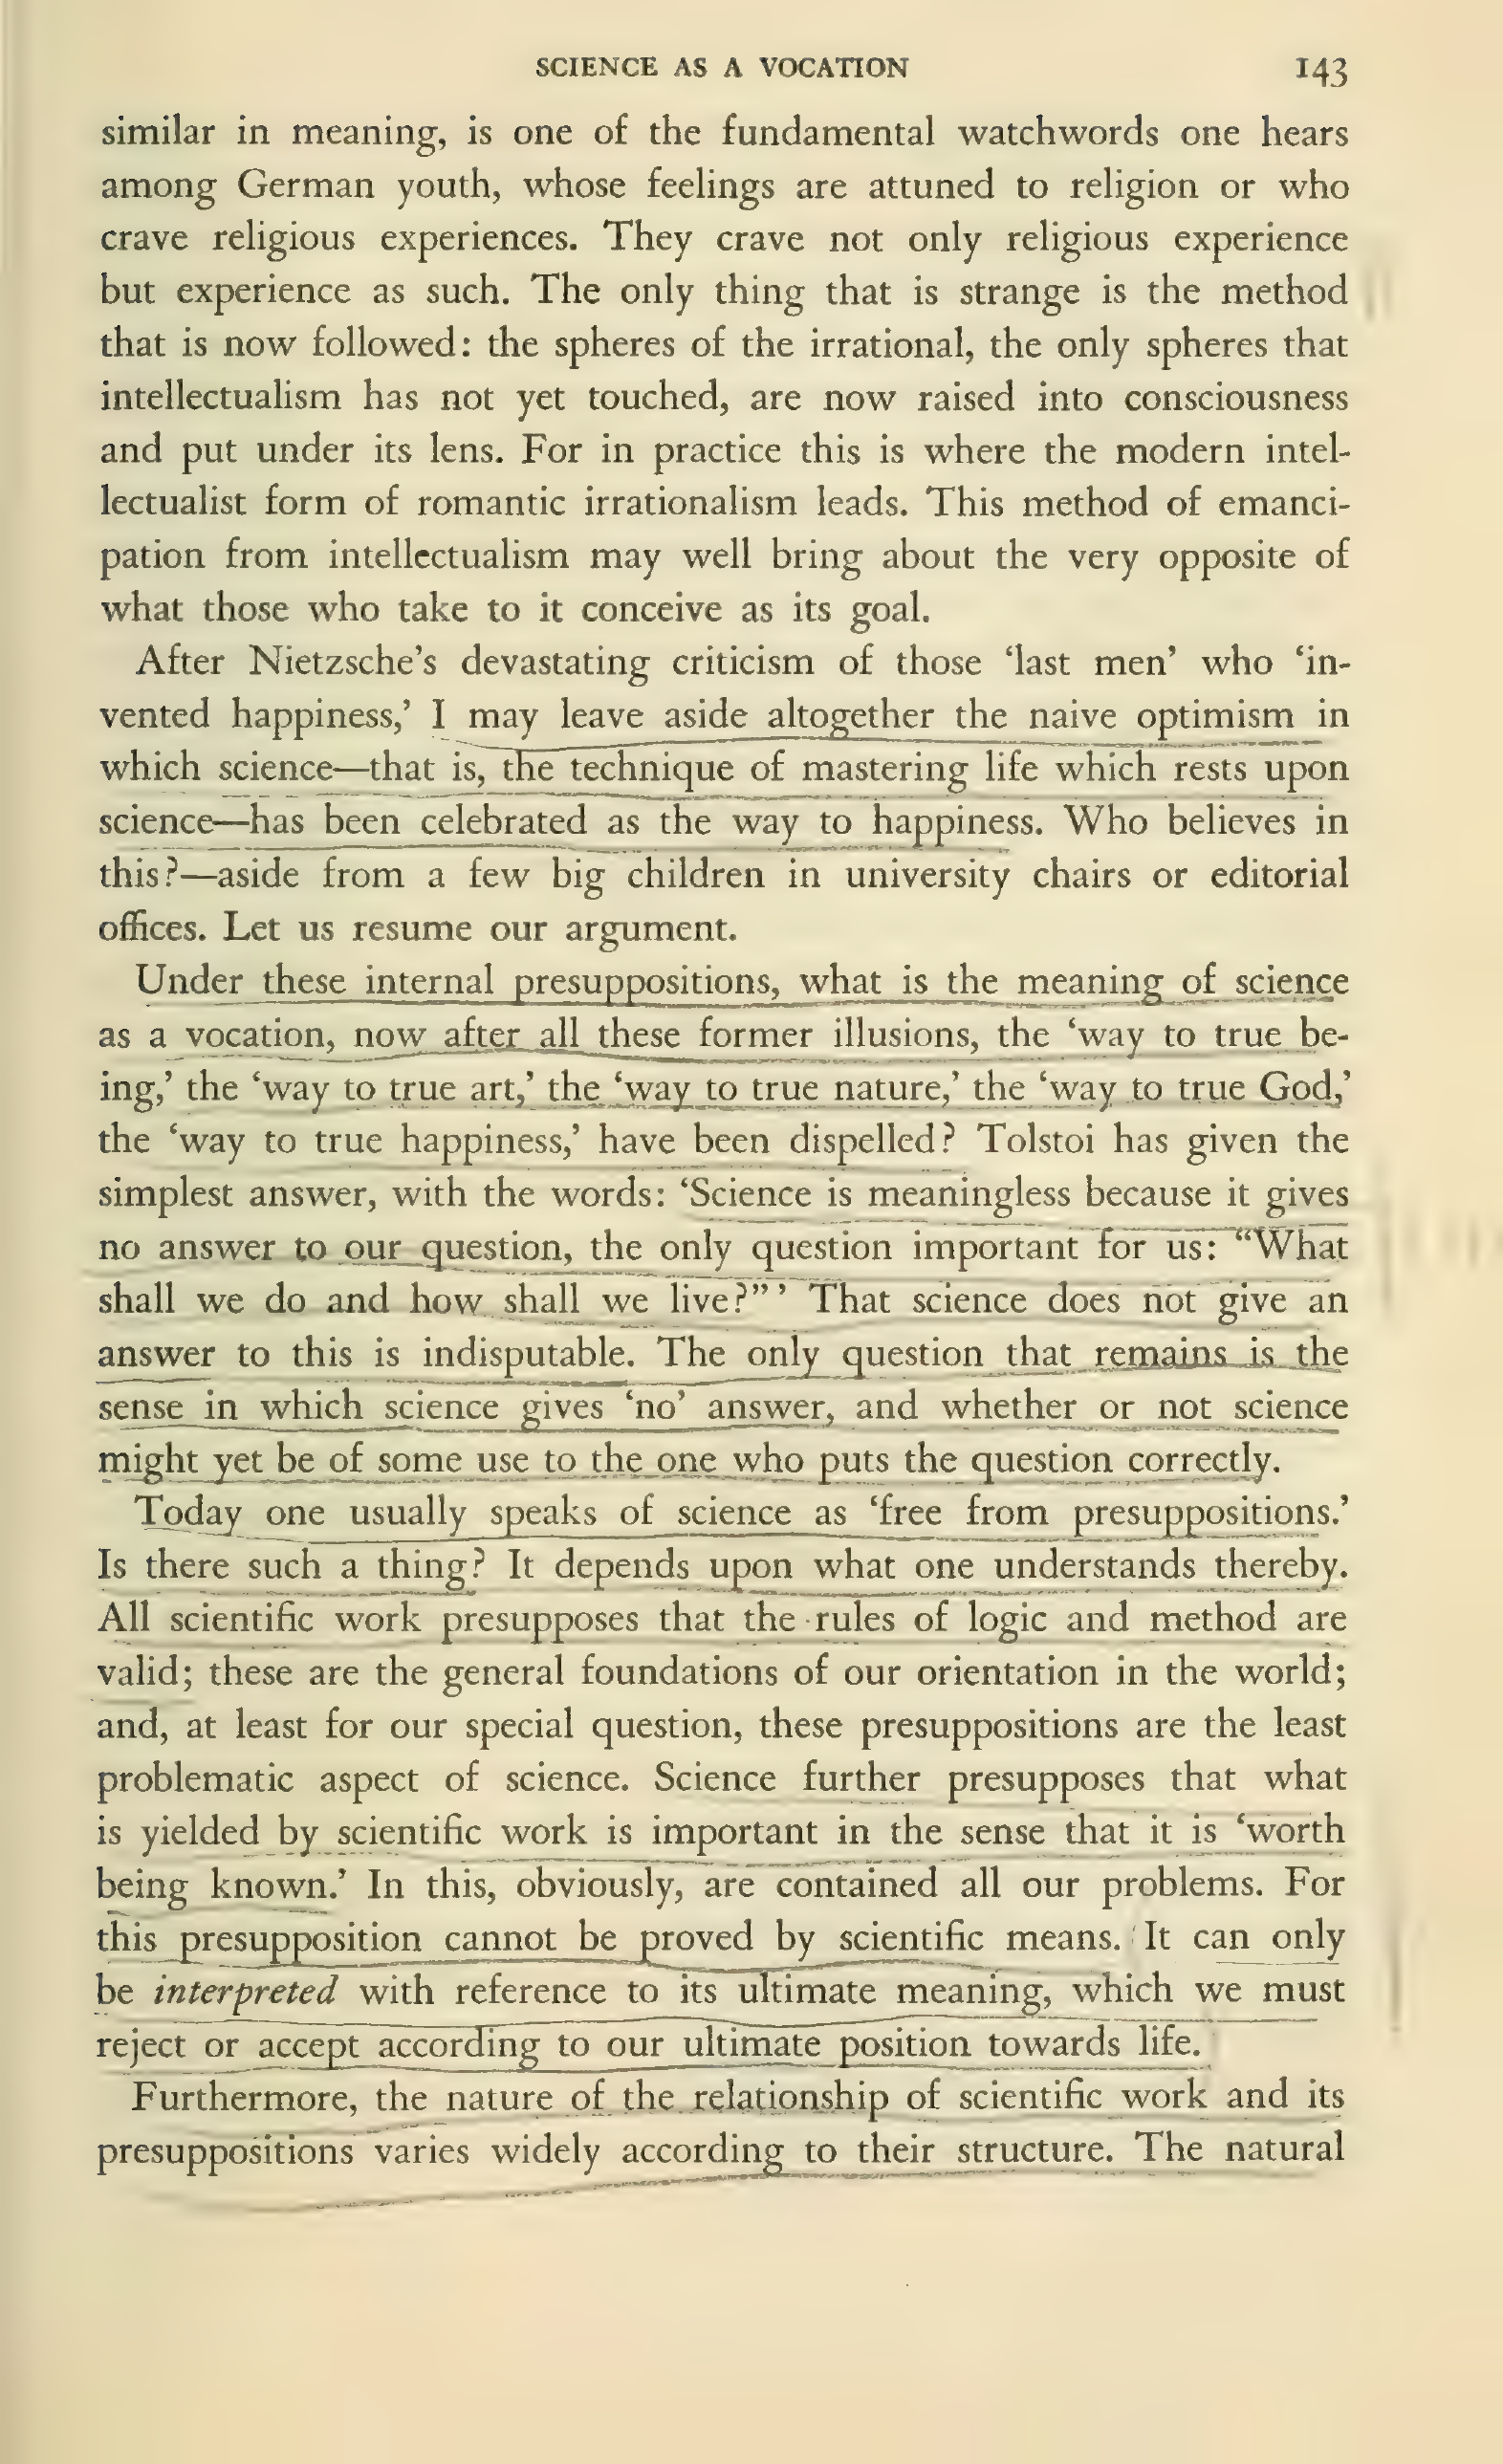 SCIENCE AS A VOCATION 143
similar in meaning, is one of the fundamental watchwords one hears
among German youth, whose feelings are attuned to religion or who
crave religious experiences. They crave not only religious experience
but experience as such. The only thing that is strange is the method
that is now followed: the spheres of the irrational, the only spheres that
intellectualism has not yet touched, are now raised into consciousness
and put under its lens. For in practice this is where the modern intel-
lectualist form of romantic irrationalism leads. This method of emanci-
pation from intellectualism may well bring about the very opposite of
what those who take to it conceive as its goal.
After Nietzsche's devastating criticism of those 'last men' who 'in-
vented happiness,' I may leave aside altogether the naive optimism in
which science—that is, the technique of mastering life which rests upon
science—has been celebrated as the way to happiness. Who believes in
this?—aside from a few big children in university chairs or editorial
offices. Let us resume our argument.
Under these internal presuppositions, what is the meaning of science
as a vocation, now after all these former illusions, the 'way to true be-
ing,' the 'way to true art,' the 'way to true nature,' the 'way to true God,'
the 'way to true happiness,' have been dispelled? Tolstoi has given the
simplest answer, with the words: 'Science is meaningless because it gives
no answer to our question, the only question important for us: "What
shall we do and how shall we live?"' That science does not give an
answer to this is indisputable. The only question that remains is the
sense in which science gives 'no' answer, and whether or not science
might yet be of some use to the one who puts the question correctly.
Today one usually speaks of science as 'free from presuppositions.'
Is there such a thing? It depends upon what one understands thereby.
All scientific work presupposes that the rules of logic and method are
valid; these are the general foundations of our orientation in the world;
and, at least for our special question, these presuppositions are the least
problematic aspect of science. Science further presupposes that what
is yielded by scientific work is important in the sense that it is 'worth
being known.' In this, obviously, are contained all our problems. For
this presupposition cannot be proved by scientific means. It can only
be interpreted with reference to its ultimate meaning, which we must
reject or accept according to our ultimate position towards life.
Furthermore, the nature of the relationship of scientific work and its
presuppositions varies widely according to their structure. The natural